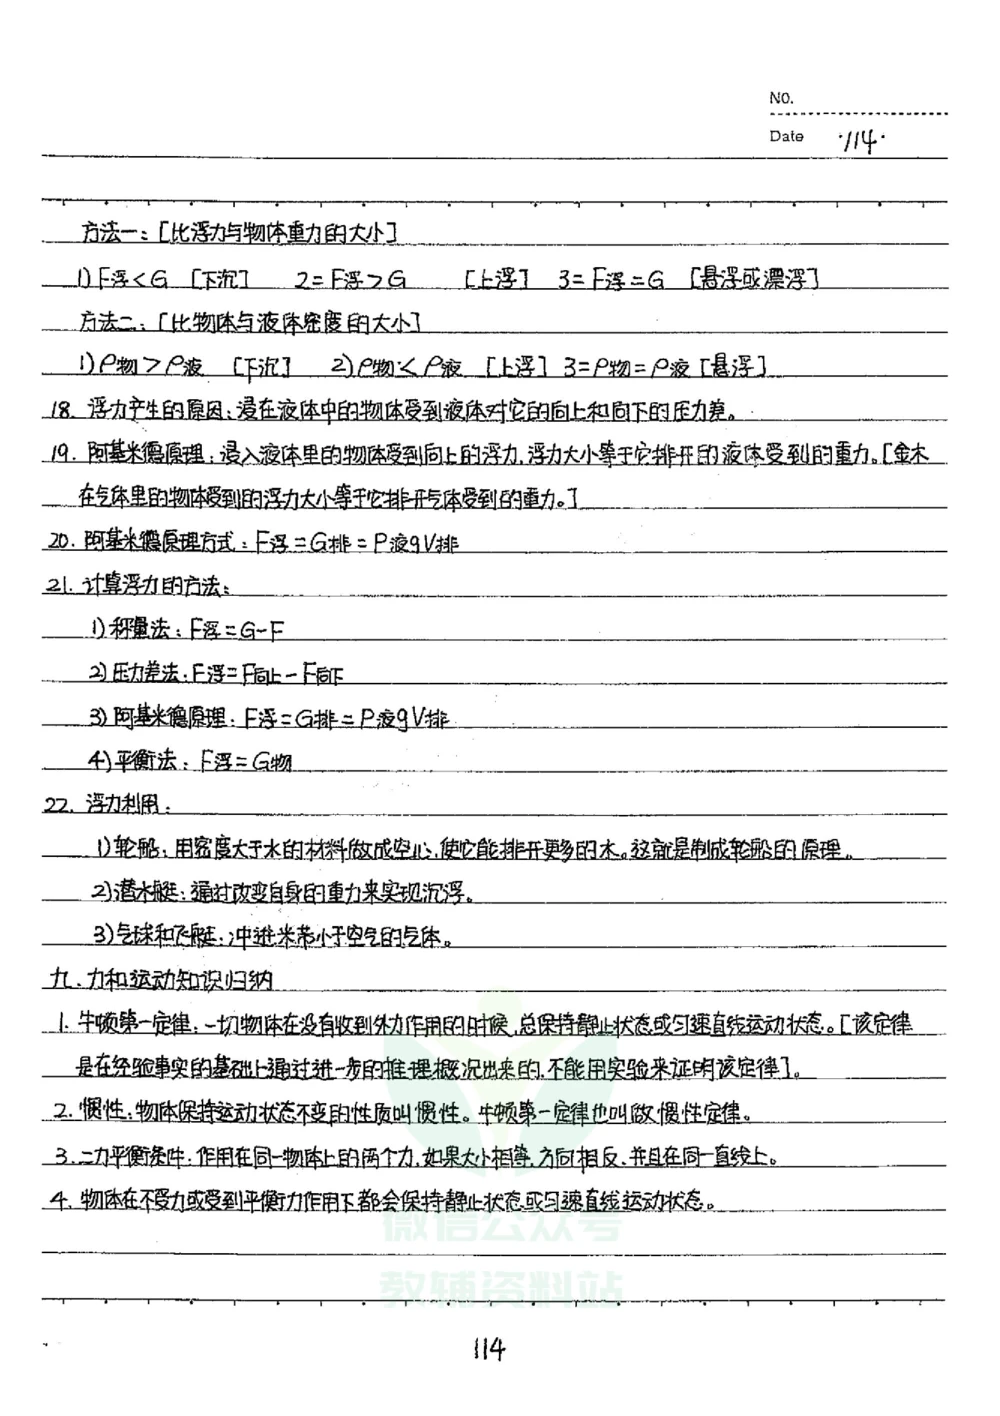 No.
Date ·114·
方法一：[比浮力与物体重力的大小]
1) F浮<G [下沉] 2=F浮>G [上浮] 3=F浮=G [悬浮或漂浮]
方法二：[比物体与液体密度的大小]
1) ρ物>ρ液 [下沉] 2) ρ物<ρ液 [上浮] 3=ρ物=ρ液 [悬浮]
18. 浮力产生的原因：浸在液体中的物体受到液体对它的向上和向下的压力差。
19. 阿基米德原理：浸入液体里的物体受到向上的浮力，浮力大小等于它排开的液体受到的重力。[金木
在气体里的物体受到的浮力大小等于它排开气体受到的重力。]
20. 阿基米德原理方式：F浮=G排=P液gV排
21. 计算浮力的方法：
1) 称量法：F浮=G-F
2) 压力差法：F浮=F向上-F向下
3) 阿基米德原理：F浮=G排=P液gV排
4) 平衡法：F浮=G物
22. 浮力利用：
1) 轮船：用密度大于水的材料做成空心，使它能排开更多的水。这就是制成轮船的原理。
2) 潜水艇：通过改变自身的重力来实现沉浮。
3) 气球和飞艇：冲进米帯小于空气的气体。
九、力和运动知识归纳
1. 牛顿第一定律：一切物体在没有收到外力作用的时候，总保持静止状态或匀速直线运动状态。[该定律
是在经验事实的基础上通过进一步的推理概况出来的，不能用实验来证明该定律]。
2. 惯性：物体保持运动状态不变的性质叫惯性。牛顿第一定律也叫做惯性定律。
3. 二力平衡条件：作用在同一物体上的两个力，如果大小相等，方向相反，并且在同一直线上。
4. 物体在不受力或受到平衡力作用下都会保持静止状态或匀速直线运动状态。
微信公众号
教辅资料站
114